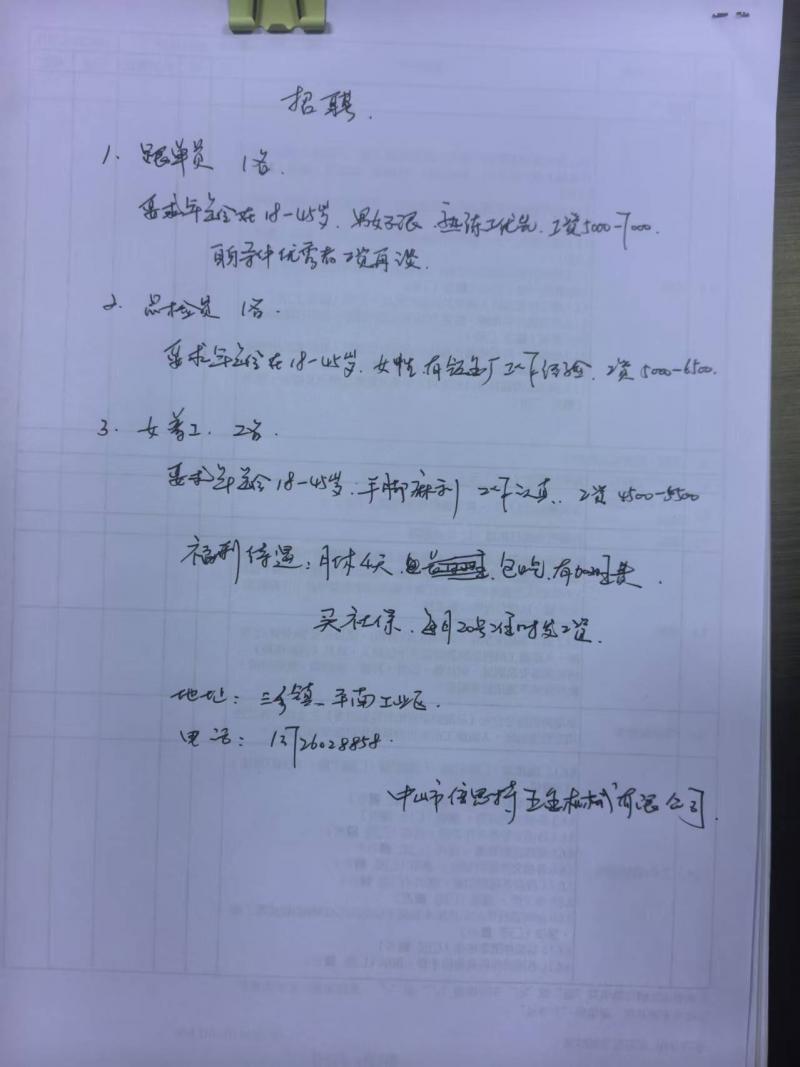 招聘.
1. 跟单员 1名.
要求年令在18-45岁. 男女不限. 熟练工优先. 工资5000-7000.
自身条件优秀者工资再谈.
2. 品检员 1名.
要求年令在18-45岁. 女性. 有五金厂工作经验. 工资5000-6500.
3. 女普工. 2名.
要求年令18-45岁. 手脚麻利 工作认真. 工资4500-5500
福利待遇: 月休4天. 包吃. 有加班费.
买社保. 每月20号准时发工资.
地址: 三乡镇 平南工业区.
电话: 13726028858.
中山市信思特五金机械有限公司.